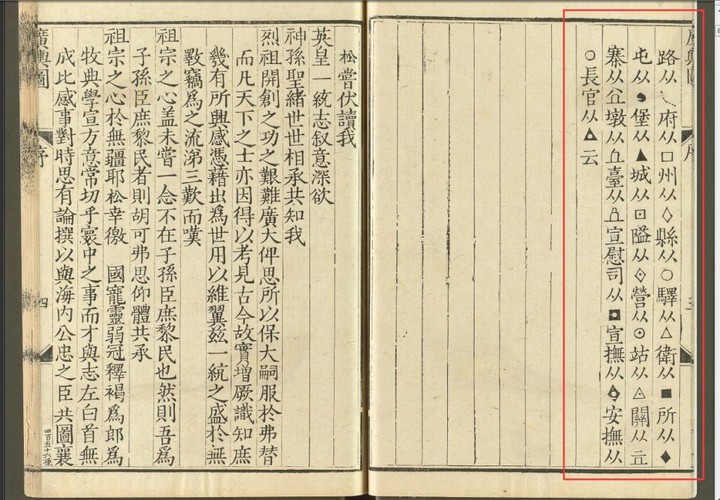 路从 府从□州从◇縣从○驛从△衛从■所从◆
屯从 堡从▲城从 隘从 營从⊙站从 關从
寨从 墩从 臺从 宣慰司从 宣撫从 安撫从
○長官从▲云
松嘗伏讀我
英皇一統志叙意深欲
神孫聖緒世世相承共知我
烈祖開創之功之艱難廣大俾思所以保大嗣服於弗替
而凡天下之士亦因得以考見古今故實增厥識知庶
幾有所興感憑藉出爲世用以維翼玆一統之盛於無
斁竊爲之流涕三歎而嘆
祖宗之心盖未嘗一念不在子孫臣庶黎民也然則吾爲
子孫臣庶黎民者則胡可弗思仰體共承
祖宗之心於無疆耶松幸徼 國寵靈弱冠釋褐爲郎爲
牧典學宣方意常切乎寰中之事而才與志左白首無
成比感事對時思有論撰以與海内公忠之臣共圖襄
廣輿圖 序 四